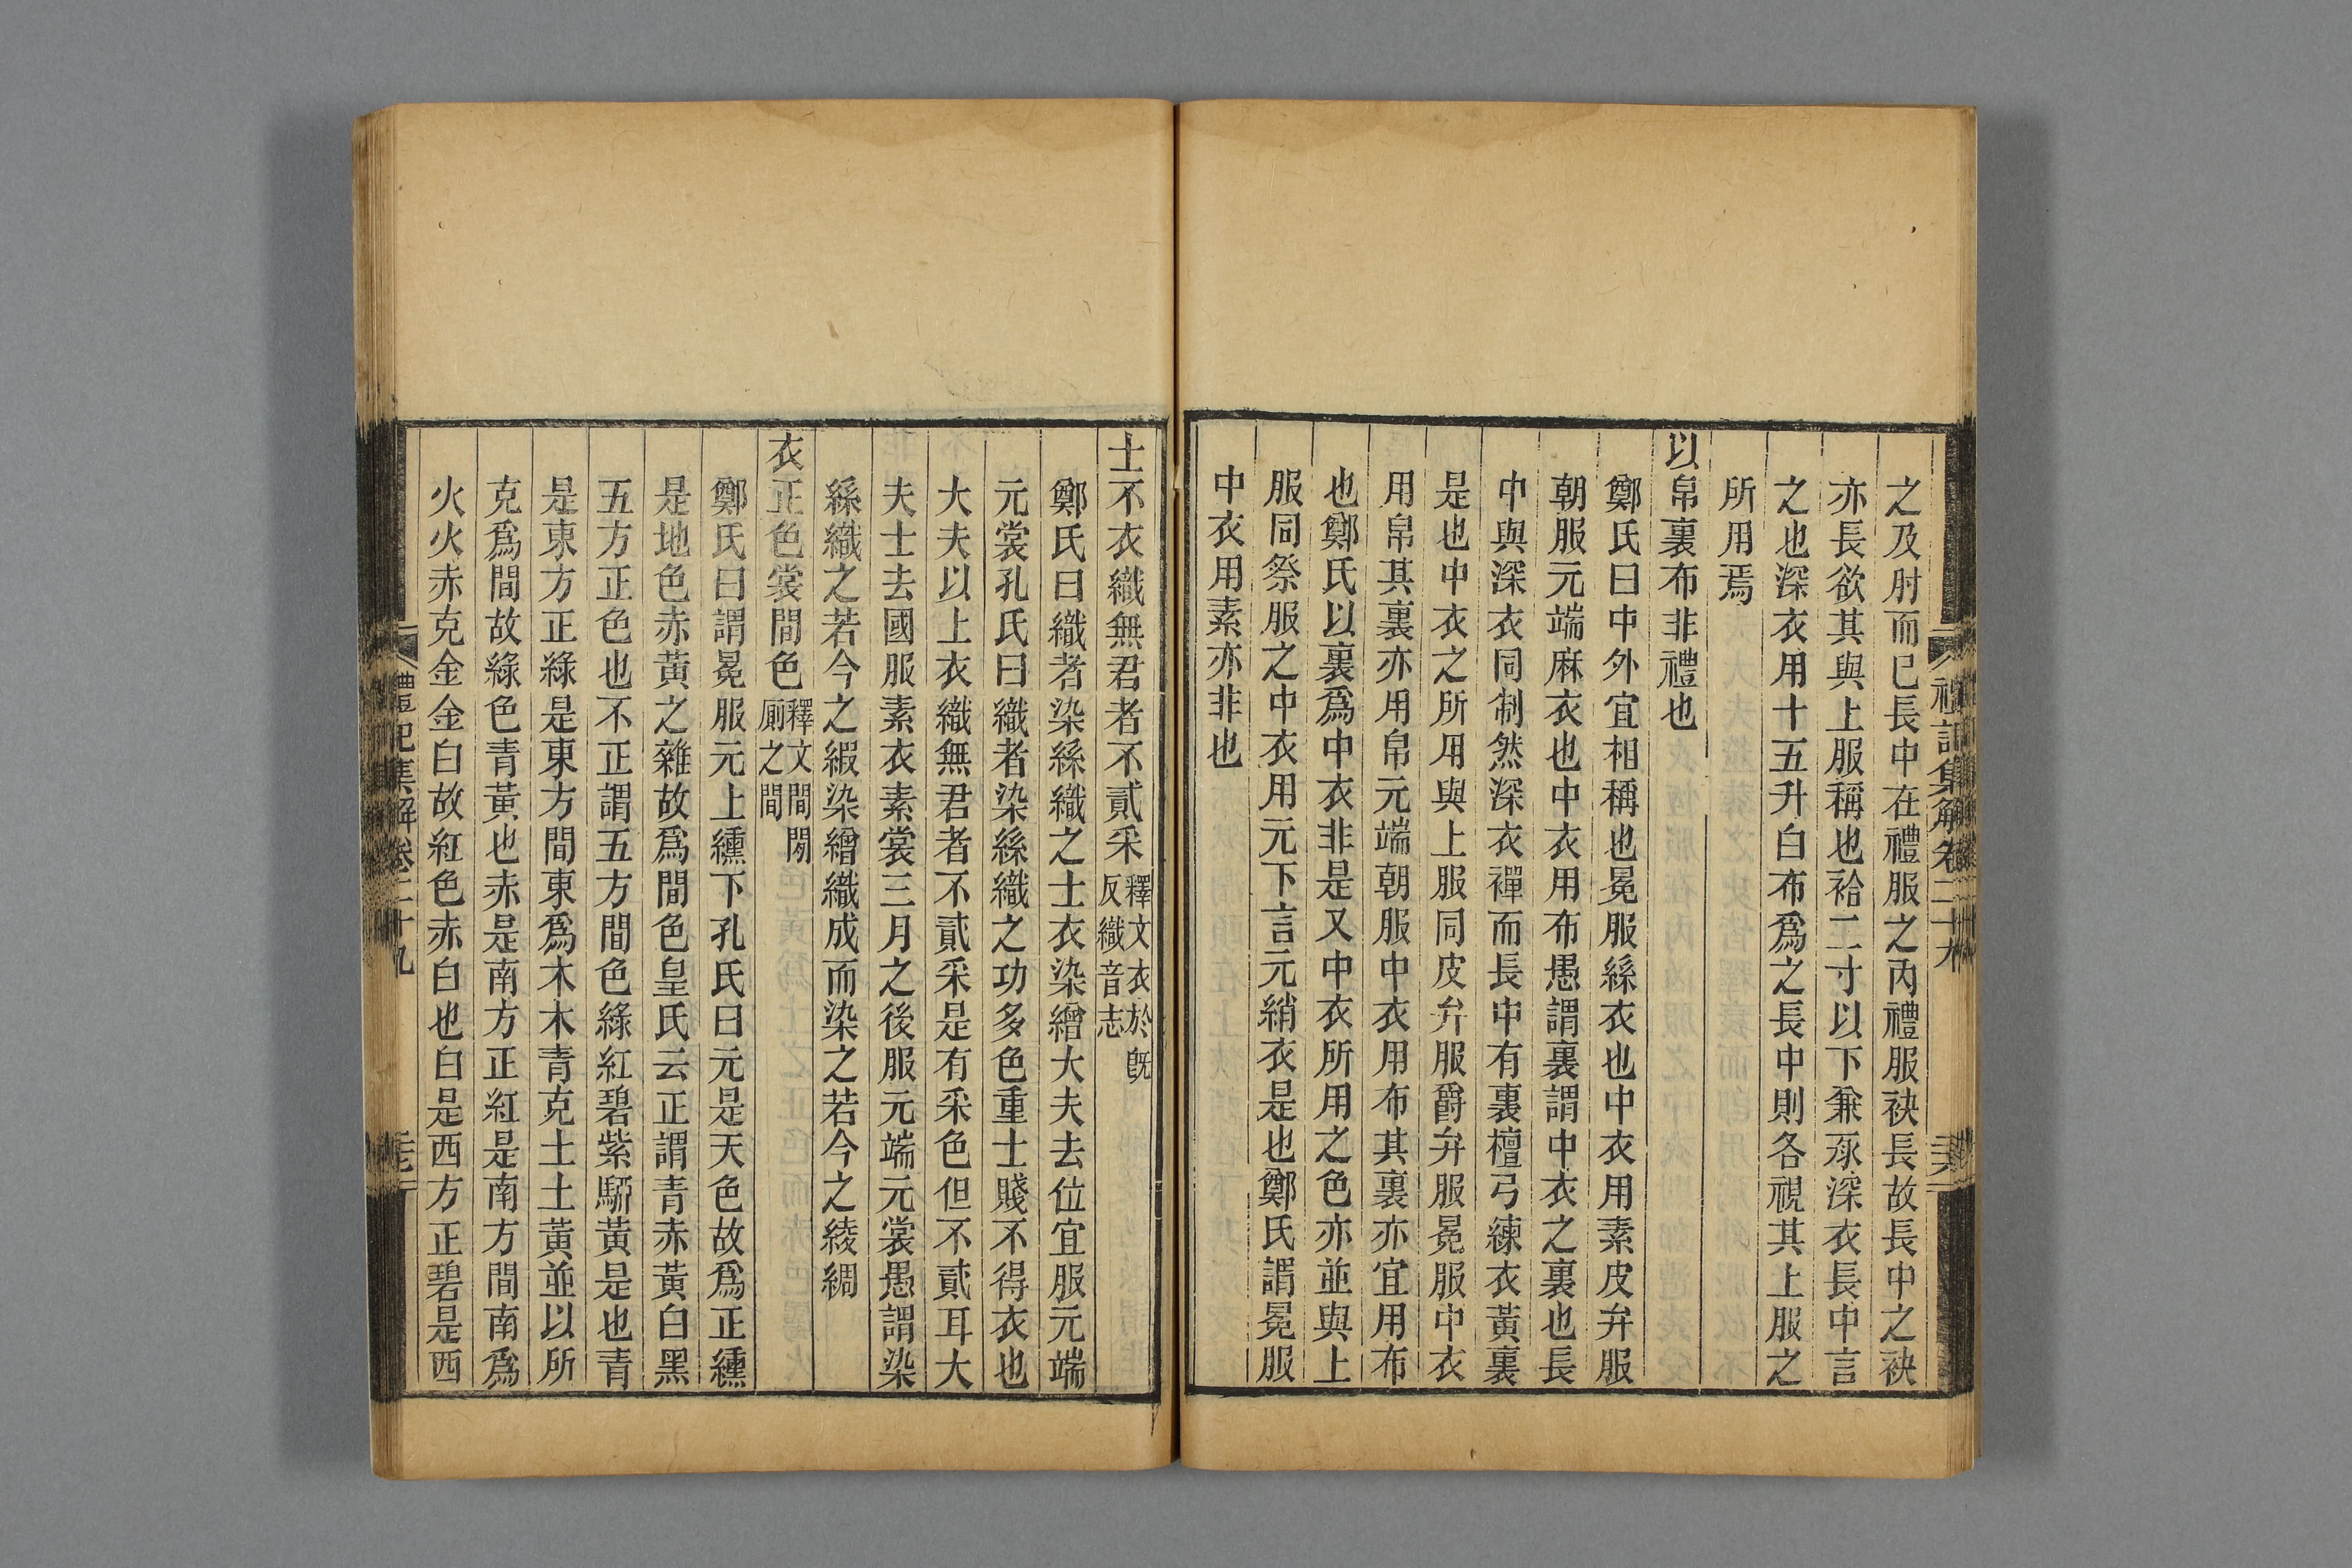 禮記集解卷二十九
之及肘而已長中在禮服之內禮服袂長故長中之袂
亦長欲其與上服稱也袷二寸以下兼承深衣長中言
之也深衣用十五升白布爲之長中則各視其上服之
所用焉
以帛裏布非禮也
鄭氏曰中外宜相稱也冕服絲衣也中衣用素皮弁服
朝服元端麻衣也中衣用布愚謂裏謂中衣之裏也長
中與深衣同制然深衣襌而長中有裏檀弓練衣黃裏
是也中衣之所用與上服同皮弁服爵弁服冕服中衣
用帛其裏亦用帛元端朝服中衣用布其裏亦宜用布
也鄭氏以裏爲中衣非是又中衣所用之色亦並與上
服同祭服之中衣用元下言元綃衣是也鄭氏謂冕服
中衣用素亦非也
士不衣織無君者不貳采釋文衣於旣
反織音志
鄭氏曰織者染絲織之士衣染繒大夫去位宜服元端
元裳孔氏曰織者染絲織之功多色重士賤不得衣也
大夫以上衣織無君者不貳采是有采色但不貳耳大
夫士去國服素衣素裳三月之後服元端元裳愚謂染
絲織之若今之緞染繒織成而染之若今之綾綢
衣正色裳間色釋文間間
廁之間
鄭氏曰謂冕服元上纁下孔氏曰元是天色故爲正纁
是地色赤黃之雜故爲間色皇氏云正謂青赤黃白黑
五方正色也不正謂五方間色綠紅碧紫騮黃是也青
是東方正綠是東方間東爲木木青克土土黃並以所
克爲間故綠色青黃也赤是南方正紅是南方間南爲
火火赤克金金白故紅色赤白也白是西方正碧是西
禮記集解卷二十九